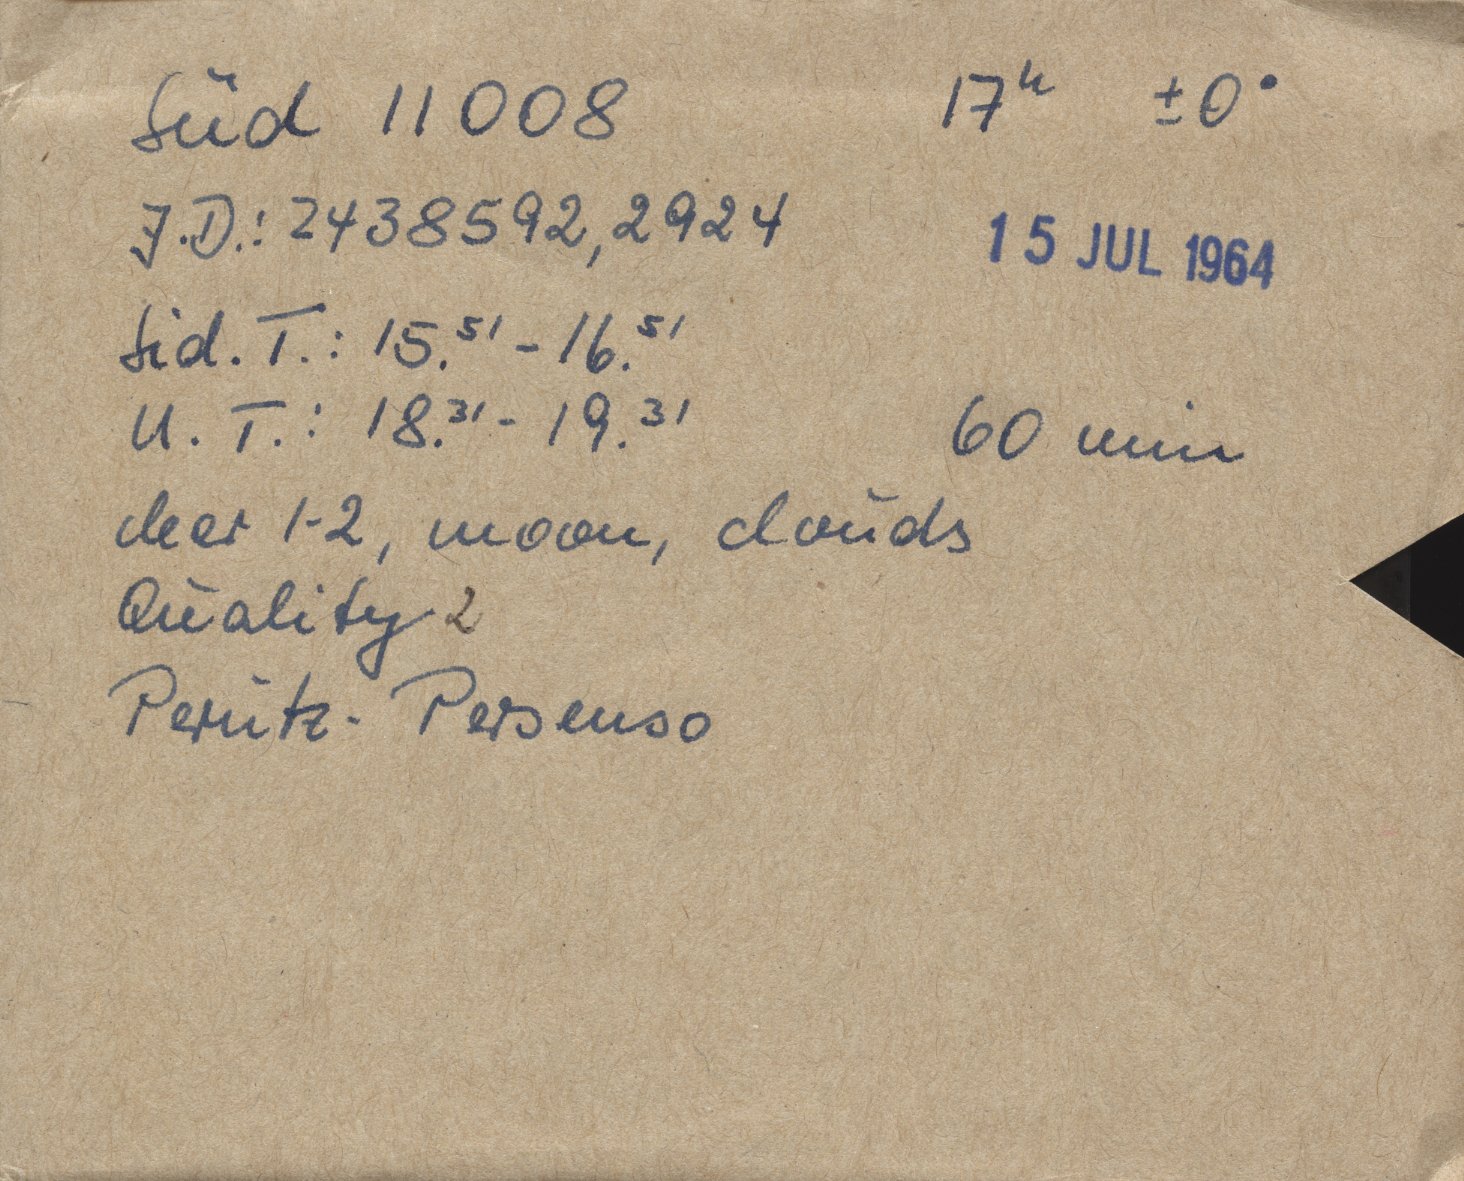 Süd 11008 17ʰ ±0°
J.D.: 2438592,2924 15 JUL 1964
Sid. T.: 15.⁵¹ - 16.⁵¹
U. T.: 18.³¹ - 19.³¹ 60 min
clear 1-2, moon, clouds
Quality 2
Perutz - Persenso